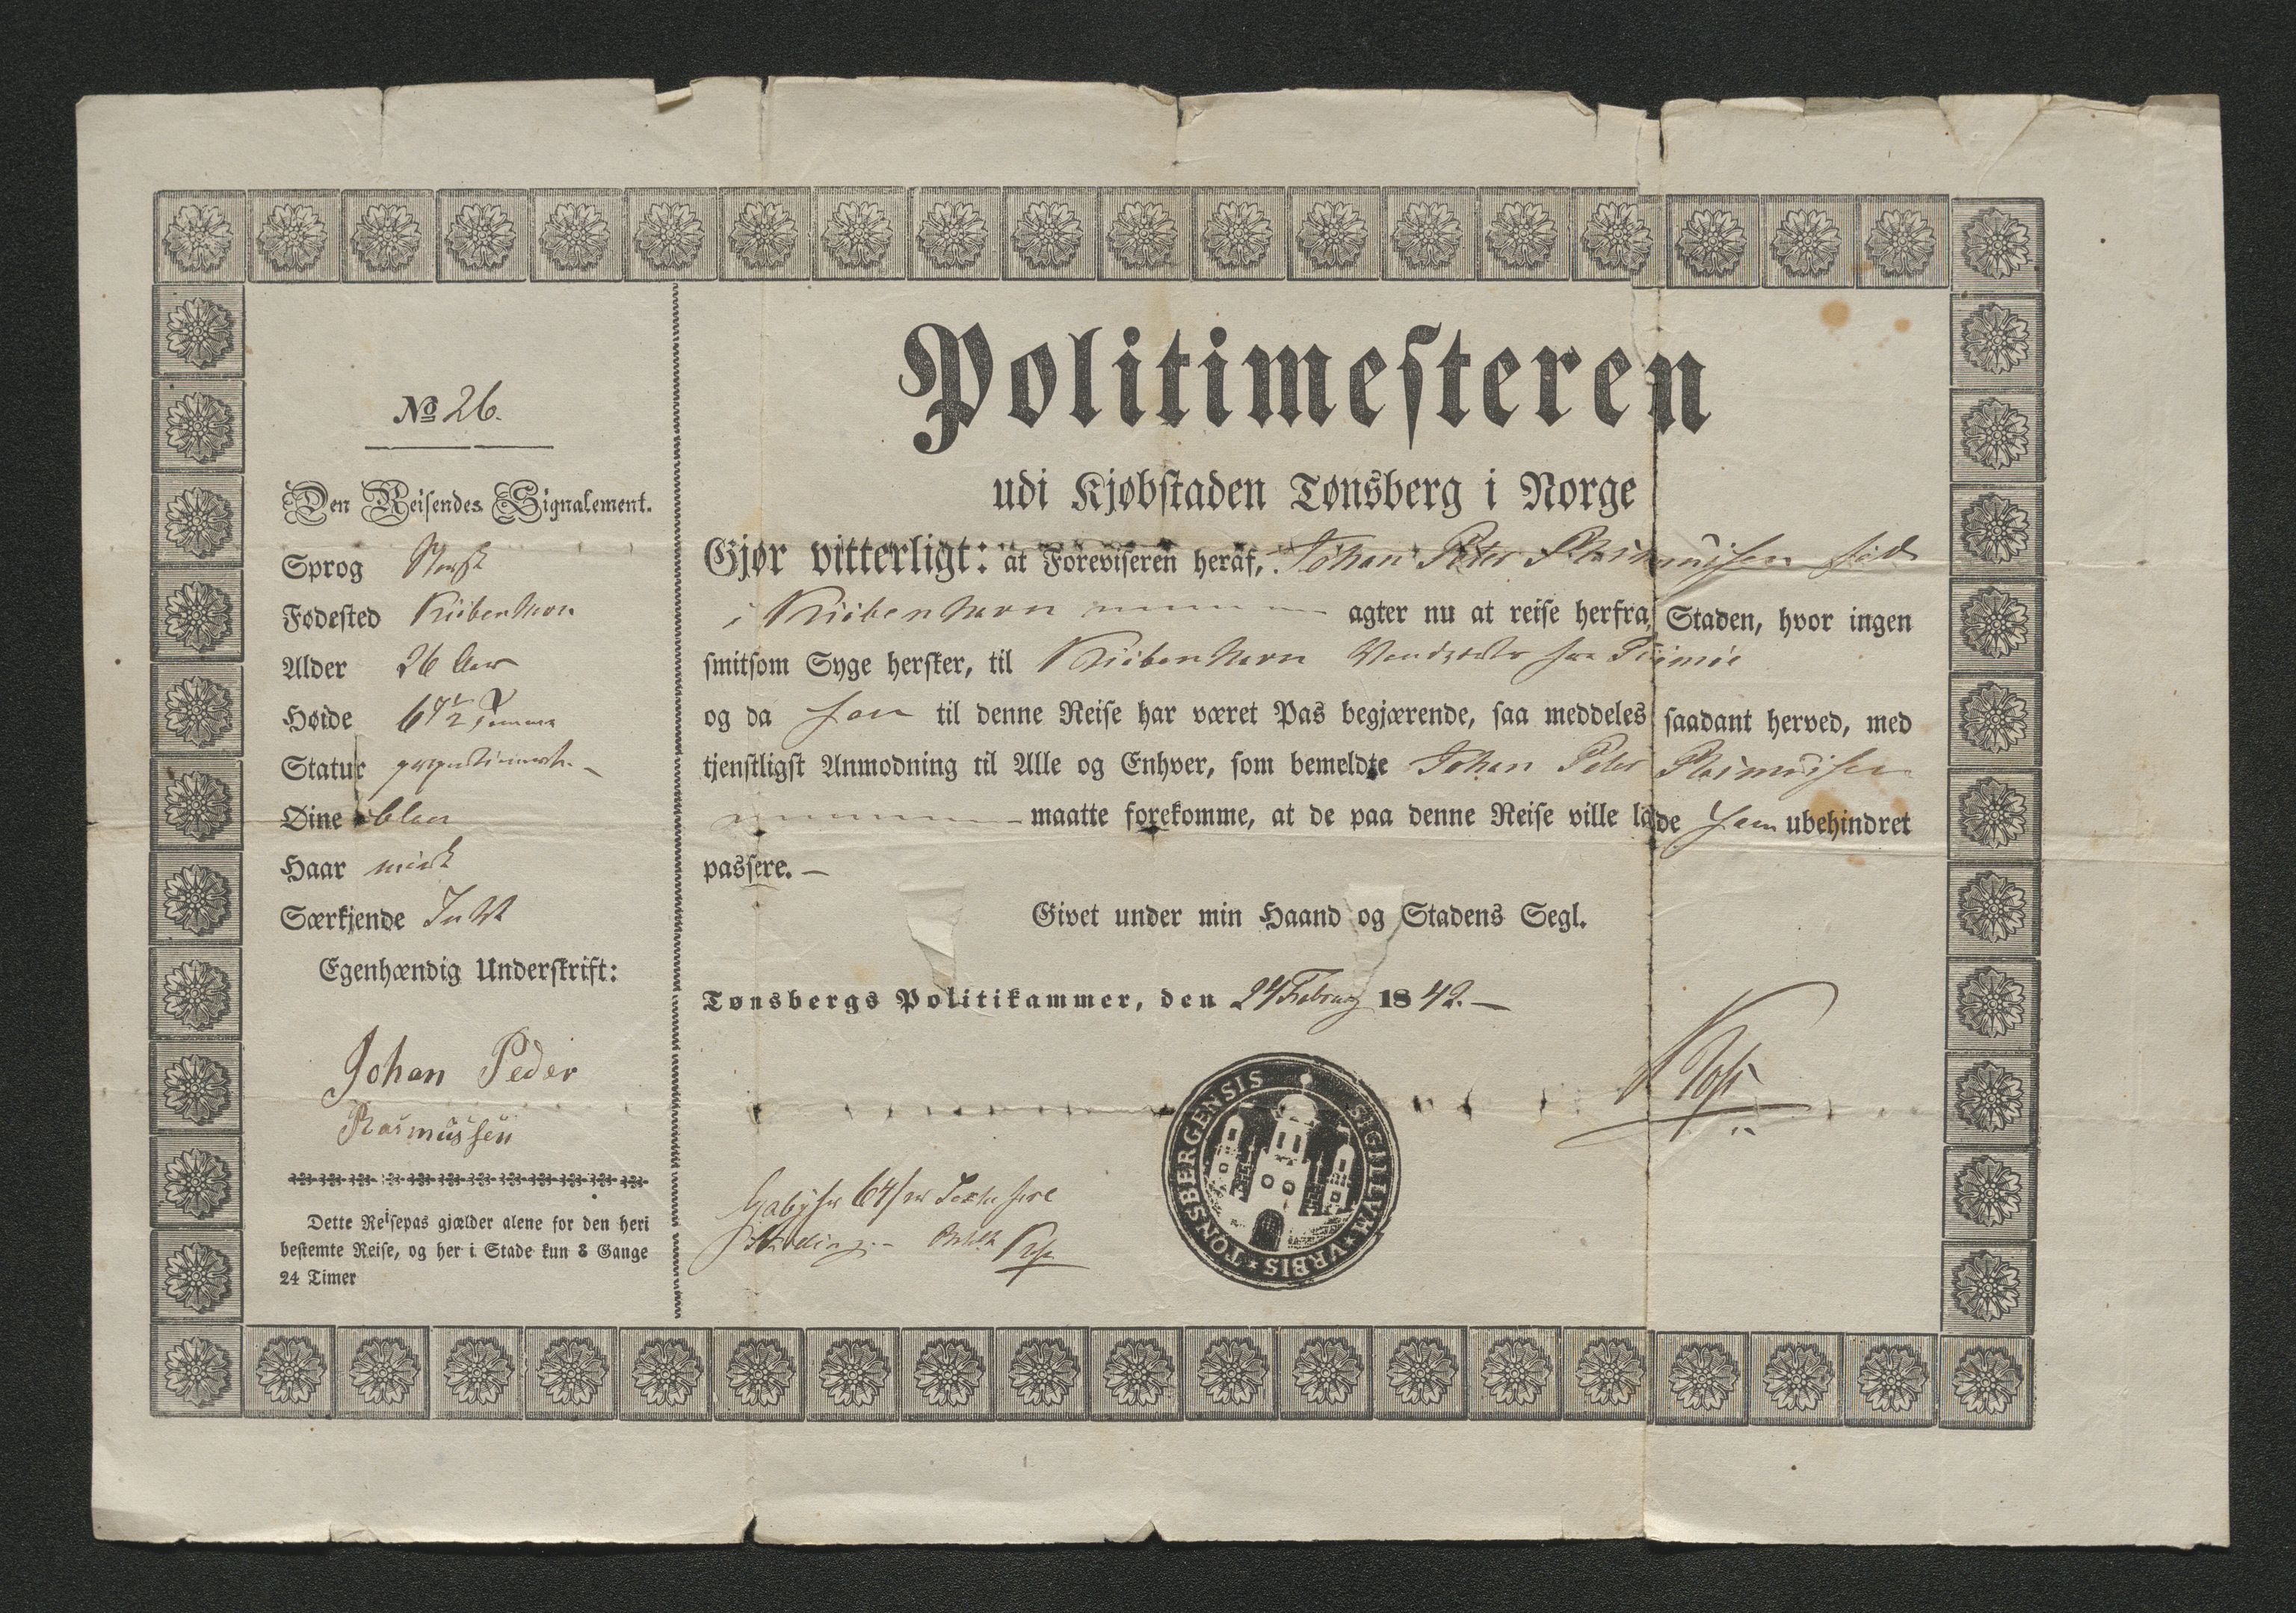 No 26.
Den Reisendes Signalement.
Sprog Norsk
Fødested Kiöbenhavn
Alder 26 Aar
Høide 64½ Tomme
Statur
Øine blaa
Haar mörk
Særkjende Intet
Egenhændig Underskrift:
Johan Peder
Rasmussen
Dette Reisepas gjælder alene for den heri
bestemte Reise, og her i Stade kun 3 Gange
24 Timer
Politimesteren
udi Kjøbstaden Tønsberg i Norge
Gjør vitterligt: at Foreviseren heraf, Johan Peter Rasmussen född
i Kiöbenhavn agter nu at reise herfra Staden, hvor ingen
smitsom Syge hersker, til Kiöbenhavn
og da han til denne Reise har været Pas begjærende, saa meddeles saadant herved, med
tjenstligst Anmodning til Alle og Enhver, som bemeldte Johan Peter Rasmussen
maatte forekomme, at de paa denne Reise ville lade ham ubehindret
passere. —
Givet under min Haand og Stadens Segl.
Tønsbergs Politikammer, den 24 Februar 1842. —
SIGILLVM ★ VRBIS ★ TONSBERGENSIS